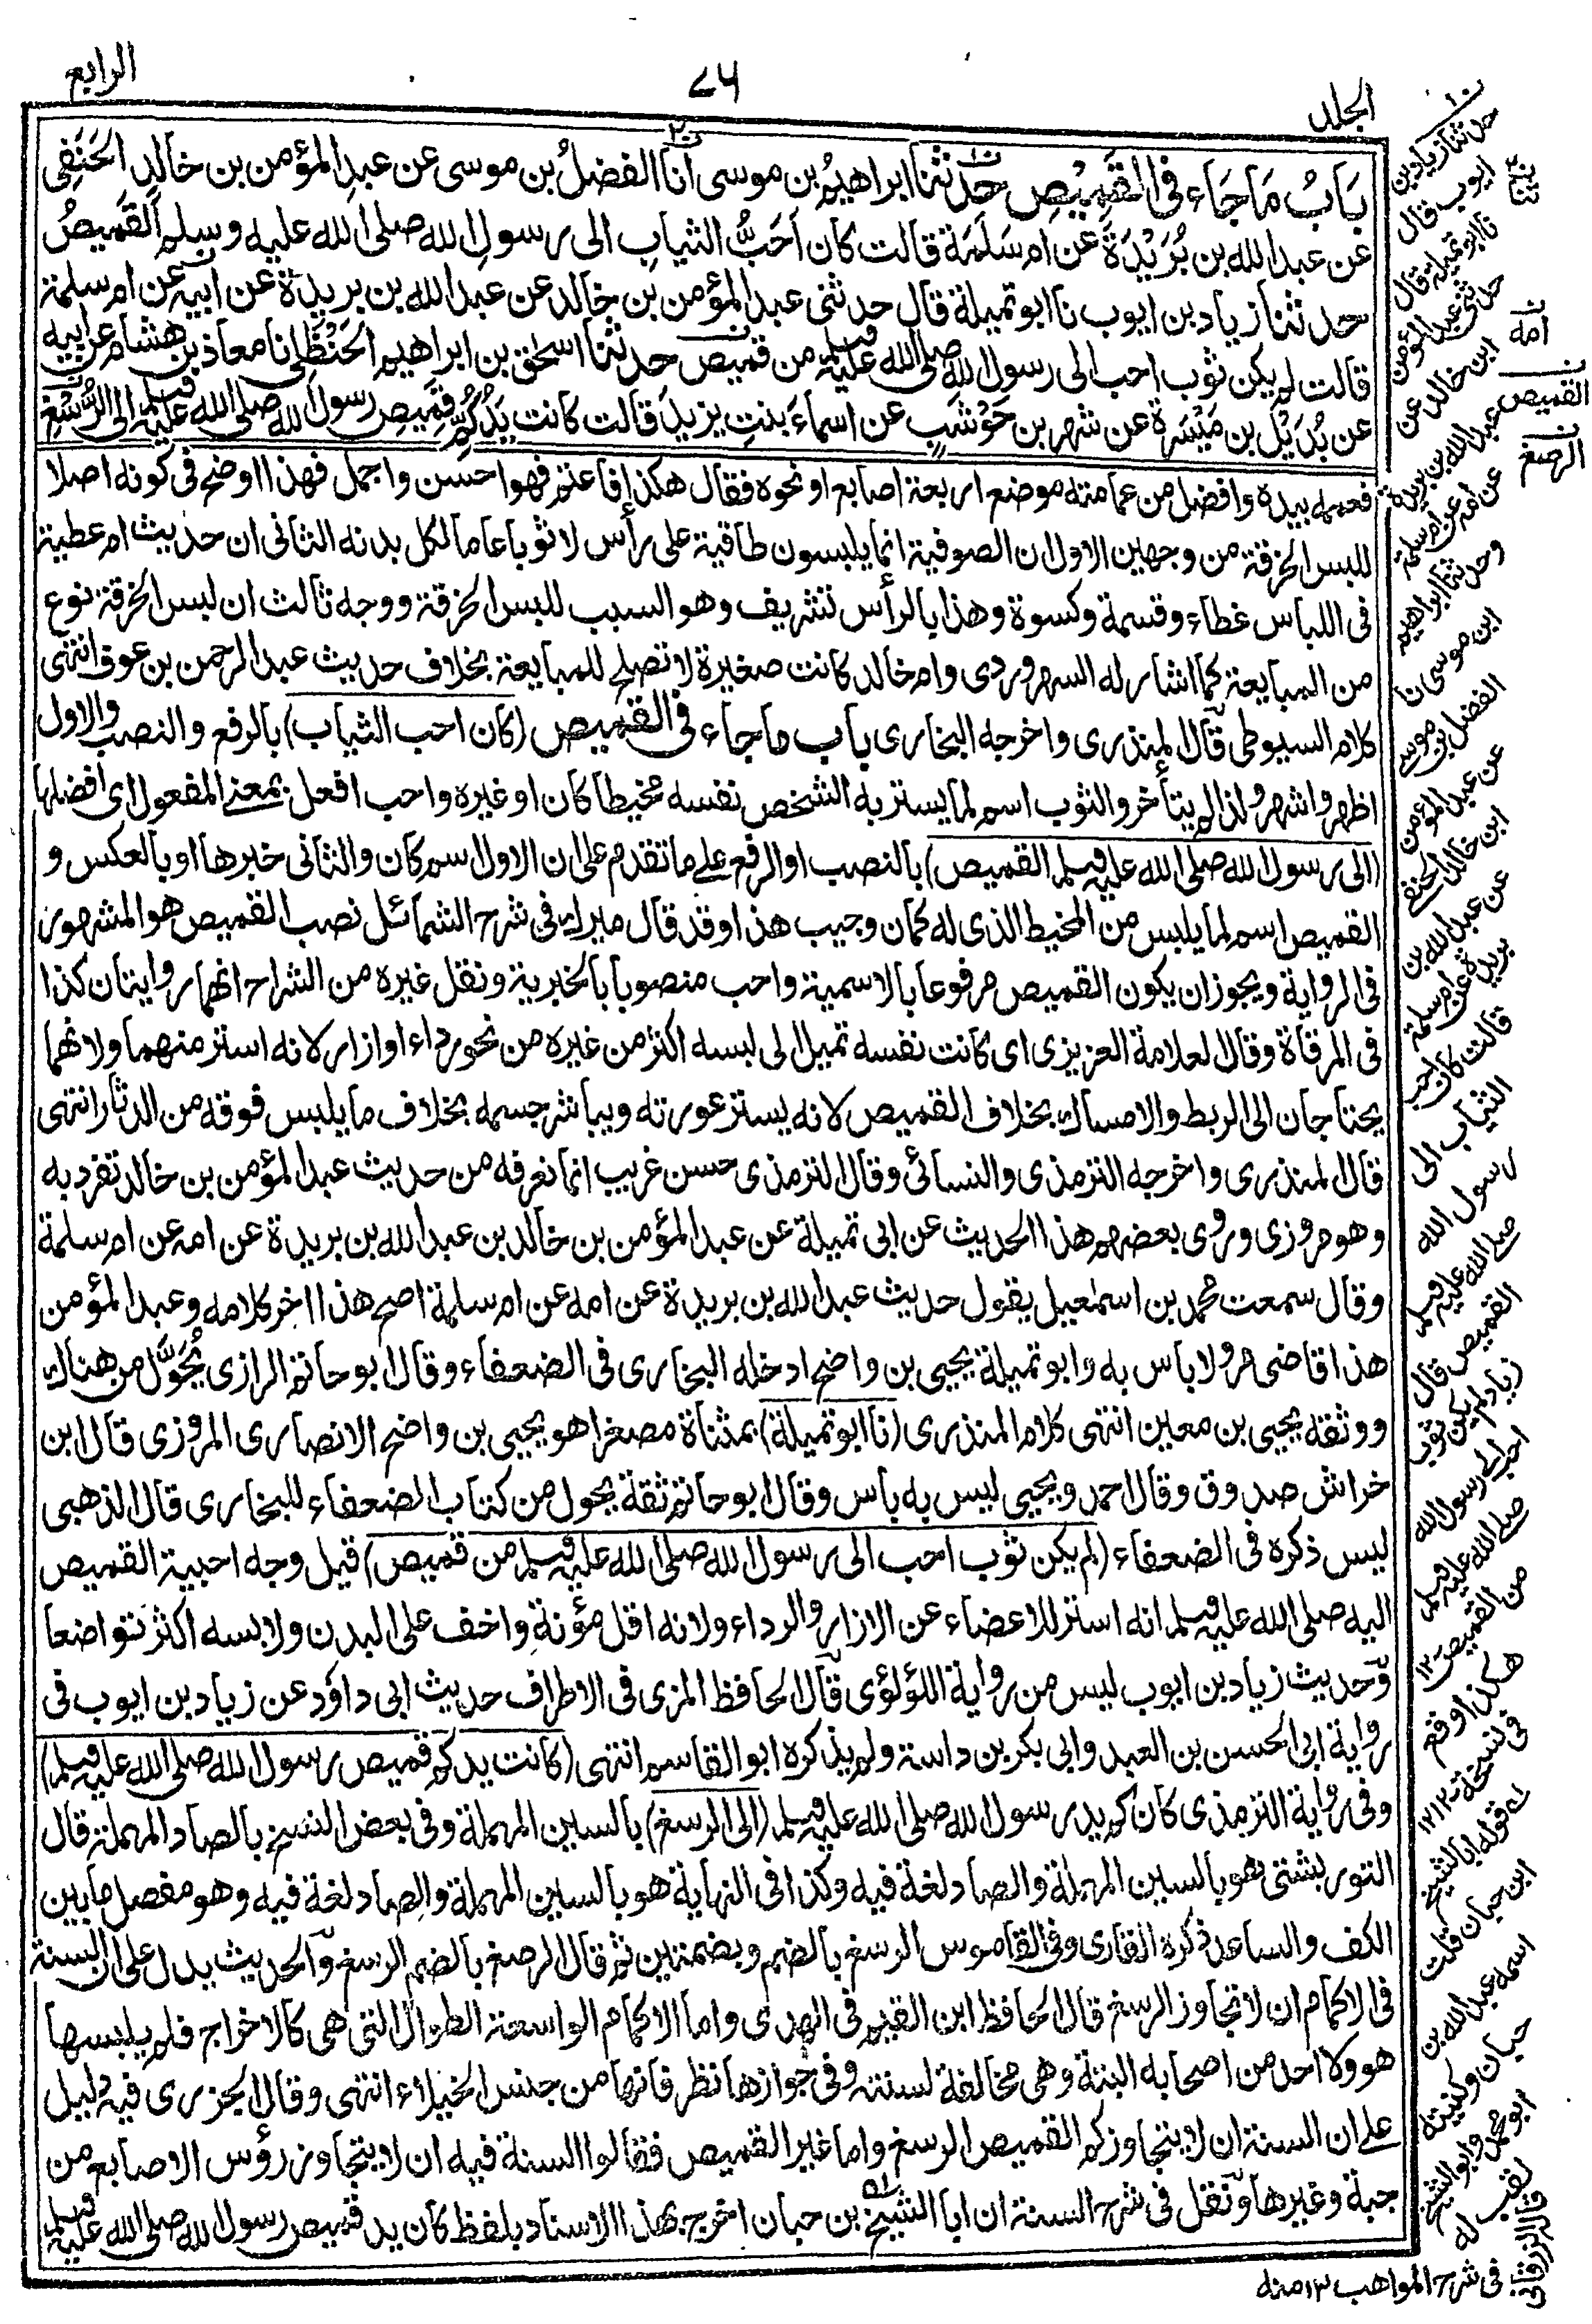 الجلد
٧٦
الرابع
بَابُ مَا جَاء فى القَمِيْصِ حدثنا ابراهيمُ بن موسى انا الفضلُ بن موسى عن عبد المؤمن بن خالد الحَنَفِى
عن عبد الله بن بُرَيْدَةَ عن ام سَلَمَة قالت كان اَحَبُّ الثيابِ الى رسولِ الله صلى الله عليه وسلم القَمِيصُ
حدثنا زياد بن ايوب نا ابو تميلة قال حدثنى عبد المؤمن بن خالد عن عبد الله بن بريدة عن ابيه عن ام سلمة
قالت لم يكن ثوب احب الى رسول الله صلى الله عليه وسلم من قميص حدثنا اسحق بن ابراهيم الحَنْظَلِى نا معاذ بن هشام عن ابيه
عن بُدَيْل بن مَيْسَرةَ عن شهر بن حَوْشَب عن اسماءَ بنتِ يزيدَ قالت كانت يدُ كُمِّ قميصِ رسول الله صلى الله عليه وسلم الى الرُّسْغِ
فعممه بيده وافضل من عمامته موضع اربعة اصابع او نحوه فقال هكذا فاعتم فهوا حسن واجمل فهذا اوضح فى كونه اصلا
للبس الخرقة من وجهين الاول ان الصوفية انما يلبسون طاقية على رأس لا ثوبا عاما لكل بدنه الثانى ان حديث ام عطية
فى اللباس غطاء وقسمة وكسوة وهذا بالرأس تشريف وهو السبب للبس الخرقة ووجه ثالث ان لبس الخرقة نوع
من المبايعة كما اشار له السهروردى وام خالد كانت صغيرة لا تصلح للمبايعة بخلاف حديث عبد الرحمن بن عوف انتهى
كلام السيوطى قال المنذرى واخرجه البخارى باب ما جاء فى القميص (كان احب الثياب) بالرفع والنصب والاول
اظهر واشهر ولذا لم يتأخر والثوب اسم لما يستر به الشخص نفسه مخيطا كان او غيره واحب افعل بمعنى المفعول اى افضلها
(الى رسول الله صلى الله عليه وسلم القميص) بالنصب او الرفع على ما تقدم على ان الاول اسم كان والثانى خبرها او بالعكس و
القميص اسم لما يلبس من المخيط الذى له كمان وجيب هذا وقد قال ميرك فى شرح الشمائل نصب القميص هو المشهور
فى الرواية ويجوز ان يكون القميص مرفوعا بالاسمية واحب منصوبا بالخبرية ونقل غيره من الشراح انهما روايتان كذا
فى المرقاة وقال لعلامة العزيزى اى كانت نفسه تميل الى لبسه اكثر من غيره من نحو رداء او ازار لانه استر منهما ولانهما
يحتاجان الى الربط والامساك بخلاف القميص لانه يستر عورته ويباشر جسمه بخلاف ما يلبس فوقه من الدثار انتهى
قال المنذرى واخرجه الترمذى والنسائى وقال الترمذى حسن غريب انما نعرفه من حديث عبد المؤمن بن خالد تفرد به
وهو مروزى وروى بعضهم هذا الحديث عن ابى تميلة عن عبد المؤمن بن خالد بن عبد الله بن بريدة عن امه عن ام سلمة
وقال سمعت محمد بن اسمعيل يقول حديث عبد الله بن بريدة عن امه عن ام سلمة اصح هذا اخر كلامه وعبد المؤمن
هذا قاضى مرو لا باس به وابو تميلة يحيى بن واضح ادخله البخارى فى الضعفاء وقال ابو حاتم الرازى يُحَوَّل من هناك
ووثقه يحيى بن معين انتهى كلام المنذرى (نا ابو تميلة) بمثناة مصغرا هو يحيى بن واضح الانصارى المروزى قال ابن
خراش صدوق وقال احمد ويحيى ليس به باس وقال ابو حاتم ثقة يحول من كتاب الضعفاء للبخارى قال الذهبى
ليس ذكره فى الضعفاء (لم يكن ثوب احب الى رسول الله صلى الله عليه وسلم من قميص) قيل وجه احبية القميص
اليه صلى الله عليه وسلم انه استر للاعضاء عن الازار والرداء ولانه اقل مؤنة واخف على البدن ولابسه اكثر تواضعا
وحديث زياد بن ايوب ليس من رواية اللؤلؤى قال الحافظ المزى فى الاطراف حديث ابى داؤد عن زياد بن ايوب فى
رواية ابى الحسن بن العبد وابى بكر بن داسة ولم يذكره ابو القاسم انتهى (كانت يد كم قميص رسول الله صلى الله عليه وسلم)
وفى رواية الترمذى كان كم يد رسول الله صلى الله عليه وسلم (الى الرسغ) بالسين المهملة وفى بعض النسخ بالصاد المهملة قال
التوربشتى هو بالسين المهملة والصاد لغة فيه وكذا فى النهاية هو بالسين المهملة والصاد لغة فيه وهو مفصل ما بين
الكف والساعد ذكره القارى وفى القاموس الرسغ بالضم وبضمتين ثم قال الرصغ بالضم الرسغ والحديث يدل على ان السنة
فى الاكمام ان لا تجاوز الرسغ قال الحافظ ابن القيم فى الهدى واما الاكمام الواسعة الطوال التى هى كالاخراج فلم يلبسها
هو ولا احد من اصحابه البتة وهى مخالفة لسنته وفى جوازها نظر فانها من جنس الخيلاء انتهى وقال الجزرى فيه دليل
على ان السنة ان لا يتجاوز كم القميص الرسغ واما غير القميص فقالوا السنة فيه ان لا يتجاوز رؤس الاصابع من
جبة وغيرها ونقل فى شرح السنة ان ابا الشيخ بن حبان اخرجه بهذا الاسناد بلفظ كان يد قميص رسول الله صلى الله عليه وسلم
حدثنا زياد بن
ايوب قال
نا ابو تميلة قال
حدثنى عبد المؤمن
ابن خالد عن
عبد الله بن بريدة
عن امه عن ام سلمة
وحدثنا ابراهيم
ابن موسى نا
الفضل بن موسى
عن عبد المؤمن
ابن خالد الحنفى
عن عبد الله بن
بريدة عن ام سلمة
قالت كان احب
الثياب الى
رسول الله
صلى الله عليه وسلم
القميص قال
زياد لم يكن ثوب
احب الى رسول الله
صلى الله عليه وسلم
من القميص ١٢
هكذا وقع
فى نسخة ١٢
قوله ابا الشيخ
ابن حبان قلت
اسمه عبد الله بن
حبان وكنيته
ابو محمد وابو الشيخ
لقب له
قاله الزرقانى
فى شرح المواهب ١٢ منه
ثنا
امه
القميص
الرصغ